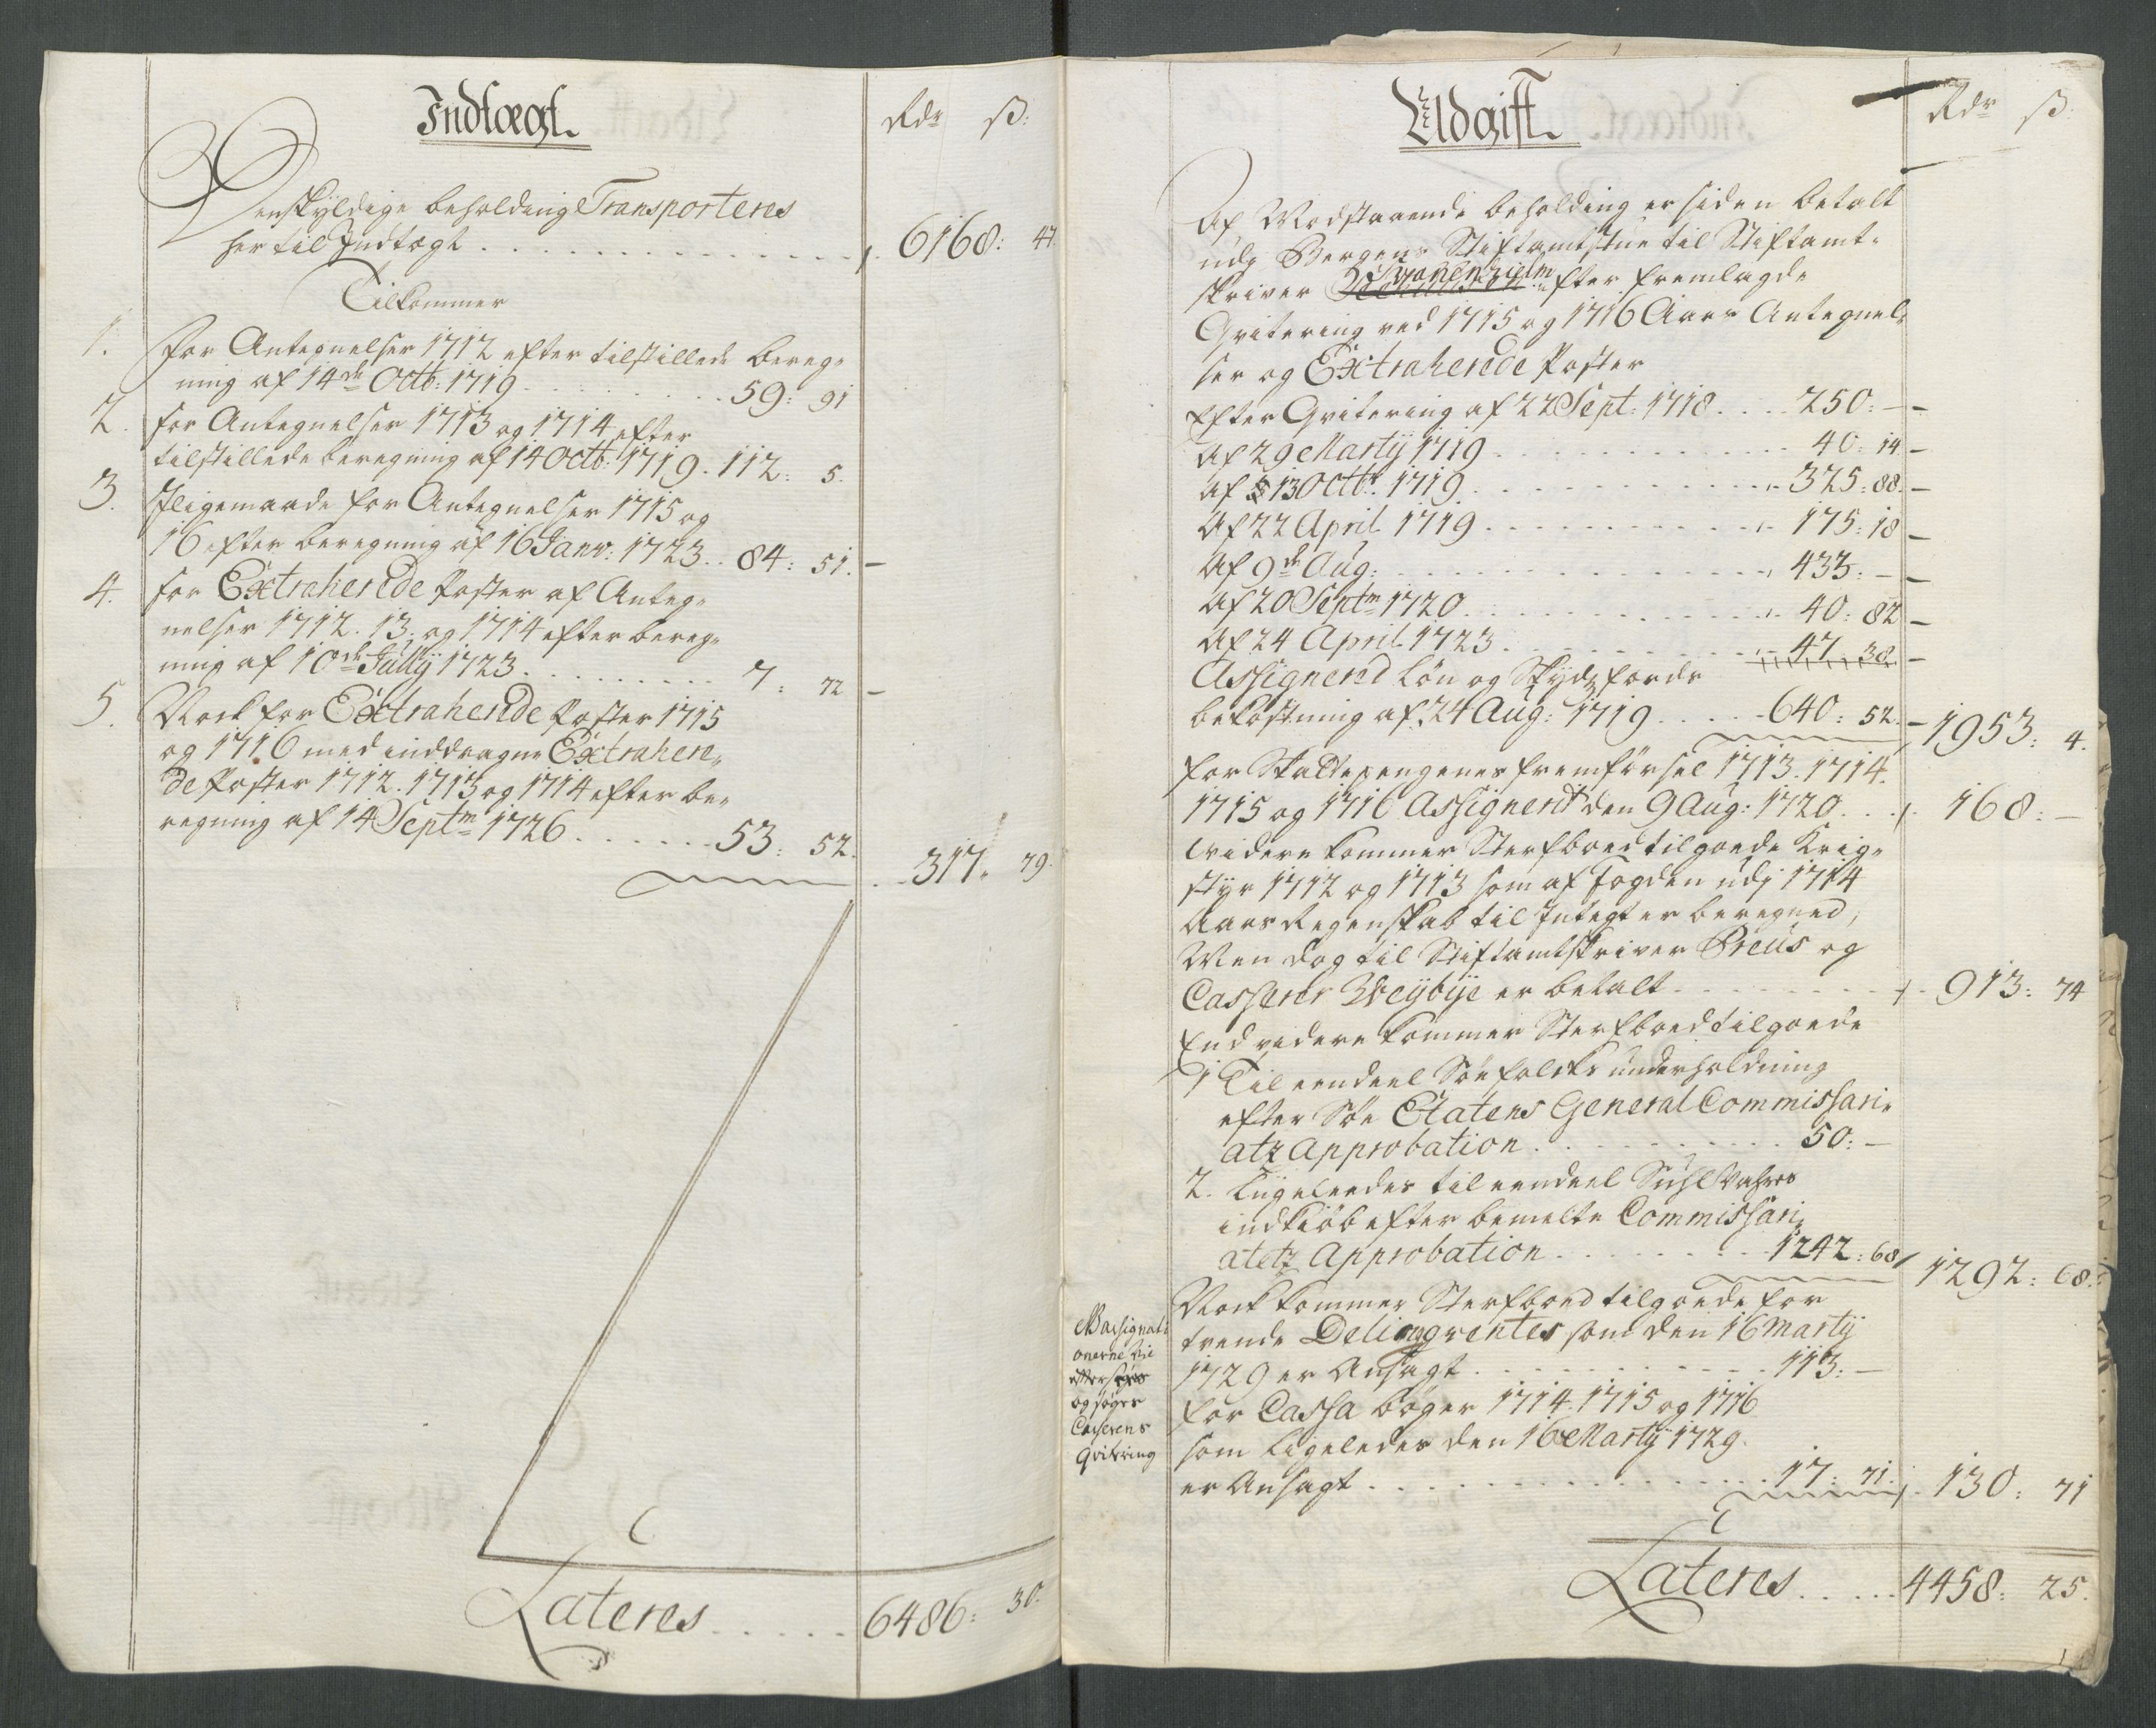 Indtægt.
Rdr ß:
Denskyldige beholding Transporteres
her til Indtægt . . . . . . . . . . . . . . 6168: 47.
Tilkommer
1. for Antegnelser 1712 efter tilstillede bereg-
ning af 14de Octb: 1719 . . . . . . . . . 59: 91
2. for Antegnelser 1713 og 1714 efter
tilstillede beregning af 14 Octb: 1719. 112: 5.
3. Iligemaade for Antegnelser 1715 og
16 efter beregning af 16 Janv: 1723. . 84: 51. –
4. for Extraherede Poster af Anteg-
nelser 1712. 13. og 1714 efter bereg-
ning af 10de Julÿ 1723 . . . . . . . . . 7: 72 –
5. Nock for Extraherede Poster 1715
og 1716 med inddragne Extrahere-
de Poster 1712. 1713 og 1714 efter be-
regning af 14 Septm 1726 . . . . . . 53: 52.
. . 317. 79.
Lateres . . . . . 6486: 30.
Udgift.
Rdr ß:
Af Modstaaende beholding er siden betalt
udj Bergens Stiftamtstue til Stiftamt-
skriver Svanenhielm efter fremlagde
Qvitering ved 1715 og 1716 Aars Antegnel-
ser og Extraherede Poster
Efter Qvitering af 22 Sept: 1718 . . . . 250: – –
Af 29 Martÿ 1719 . . . . . . . . . . . . 40: 14 –
Af 13 Octbr. 1719 . . . . . . . . . . . . 325: 88. –
Af 22 April 1719 . . . . . . . . . . . 175: 18 –
Af 9de Aug: . . . . . . . . . . . . . . 433: – –
Af 20 Septm 1720 . . . . . . . . . . . 40: 82 –
Af 24 April 1723 . . . . . . . . . . . 47. 38. –
Assignered Løn og Skydsferds
bekostning af 24 Aug: 1719 . . . . . 640: 52. – 1953: 4.
for Skattepengenes fremførsel 1713. 1714.
1715 og 1716 Assignert den 9 Aug: 1720 . . . 168: –
Widere kommer Sterfboed tilgoede Krig-
styr 1712 og 1713 som af Fogden udj 1714
Aars Regenskab til Integt er beregned,
Men dog til Stiftamtskriver Preus og
Casserer Weÿbÿe er betalt . . . . . . . . 913: 74
End videre kommer Sterfboed tilgoede
1 Til eendeel Söefolcks underholdning
efter Söe Etatens General Commissari-
atz Approbation . . . . . . . . . . . . 50: –
2. Ligeleedes til eendeel
indkiöb efter bemelte Commissari-
atetz Approbation . . . . . . . . . 1242: 68 1292: 68.
Nock kommer Sterfboed tilgoede for
trende Delinqventes som den 16 Martÿ
1729 er Ansagt . . . . . . . . . . . . 113: –
for Cassa böger 1714. 1715 og 1716
som ligeledes den 16 Martÿ 1729.
er Ansagt . . . . . . . . . . . . . . . 17: 71. 130: 71
og söges
Casserens
Qvitering
Lateres . . . . . 4458: 25.